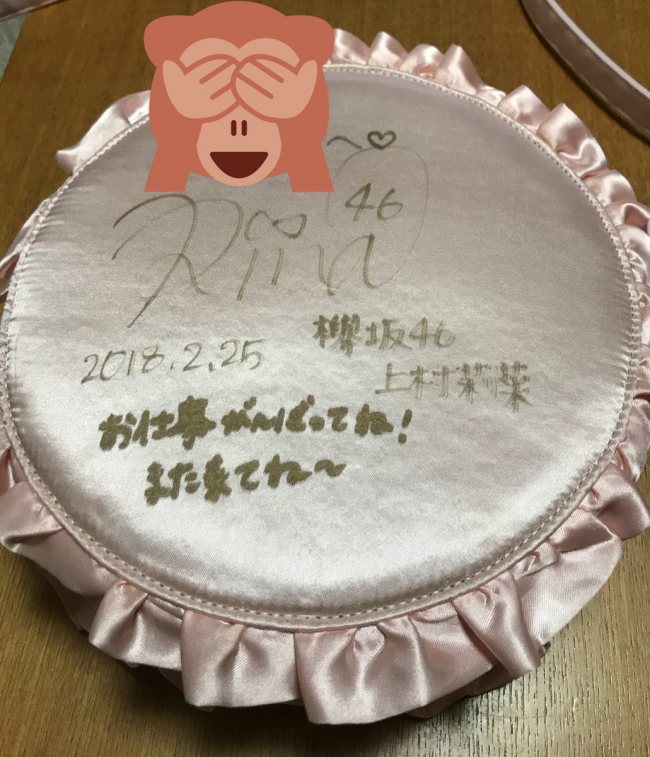 へ♡
Rina
46
2018.2.25
欅坂46
上村莉菜
お仕事がんばってね!
また来てね〜